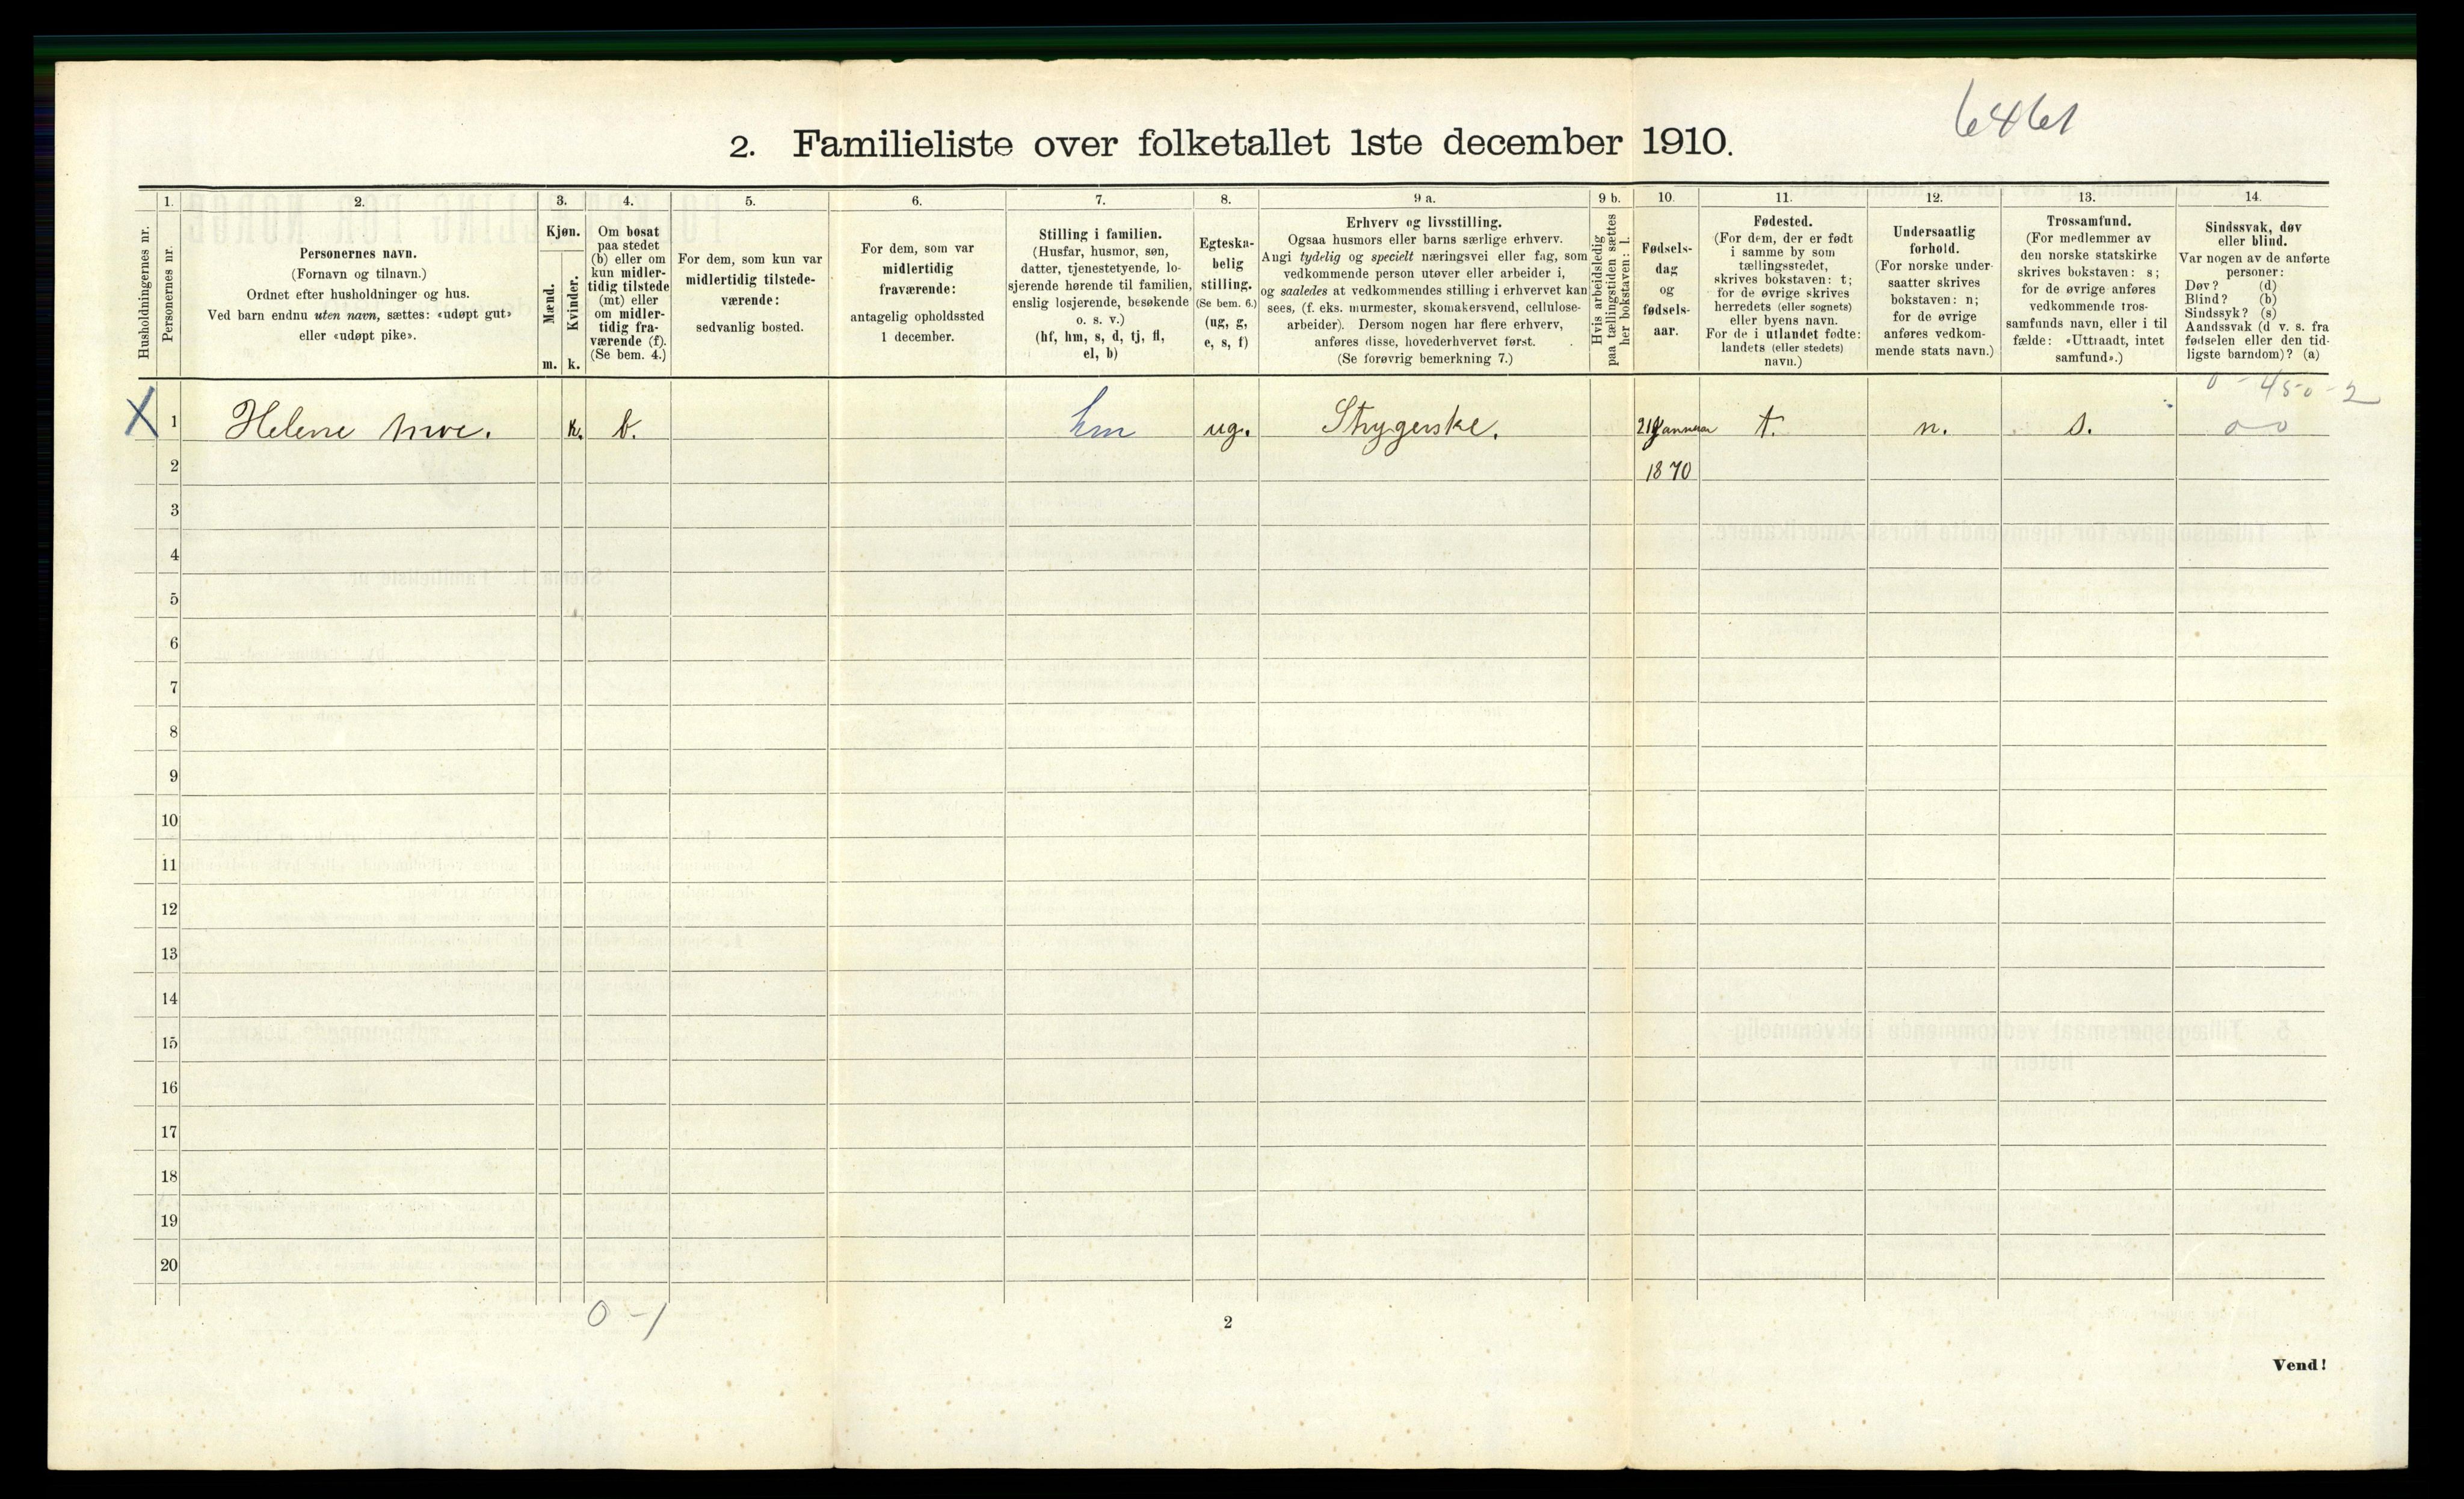 6461
2. Familieliste over folketallet 1ste december 1910.
1. 2. 3. 4. 5. 6. 7. 8. 9 a. 9 b. 10. 11. 12. 13. 14.
Husholdningernes nr.
Personernes nr.
Personernes navn.
(Fornavn og tilnavn.)
Ordnet efter husholdninger og hus.
Ved barn endnu uten navn, sættes: «udøpt gut»
eller «udøpt pike».
Kjøn.
Mænd.
Kvinder.
m. k.
Om bosat
paa stedet
(b) eller om
kun midler-
tidig tilstede
(mt) eller
om midler-
tidig fra-
værende (f).
(Se bem. 4.)
For dem, som kun var
midlertidig tilstede-
værende:
sedvanlig bosted.
For dem, som var
midlertidig
fraværende:
antagelig opholdssted
1 december.
Stilling i familien.
(Husfar, husmor, søn,
datter, tjenestetyende, lo-
sjerende hørende til familien,
enslig losjerende, besøkende
o. s. v.)
(hf, hm, s, d, tj, fl,
el, b)
Egteska-
belig
stilling.
(Se bem. 6.)
(ug, g,
e, s, f)
Erhverv og livsstilling.
Ogsaa husmors eller barns særlige erhverv.
Angi tydelig og specielt næringsvei eller fag, som
vedkommende person utøver eller arbeider i,
og saaledes at vedkommendes stilling i erhvervet kan
sees, (f. eks. murmester, skomakersvend, cellulose-
arbeider). Dersom nogen har flere erhverv,
anføres disse, hovederhvervet først.
(Se forøvrig bemerkning 7.)
Hvis arbeidsledig
paa tællingstiden sættes
her bokstaven: l.
Fødsels-
dag
og
fødsels-
aar.
Fødested.
(For dem, der er født
i samme by som
tællingsstedet,
skrives bokstaven: t;
for de øvrige skrives
herredets (eller sognets)
eller byens navn.
For de i utlandet fødte:
landets (eller stedets)
navn.)
Undersaatlig
forhold.
(For norske under-
saatter skrives
bokstaven: n;
for de øvrige
anføres vedkom-
mende stats navn.)
Trossamfund.
(For medlemmer av
den norske statskirke
skrives bokstaven: s;
for de øvrige anføres
vedkommende tros-
samfunds navn, eller i til
fælde: «Uttraadt, intet
samfund».)
Sindssvak, døv
eller blind.
Var nogen av de anførte
personer:
Døv? (d)
Blind? (b)
Sindssyk? (s)
Aandssvak (d v. s. fra
fødselen eller den tid-
ligste barndom)? (a)
0 - 450 - 2
X 1 Helene Moe. k. b. hm ug. Strygerske. 21 Januar t. n. s. 0 0
2 1870
3
4
5
6
7
8
9
10
11
12
13
14
15
16
17
18
19
20
0 - 1
2
Vend!